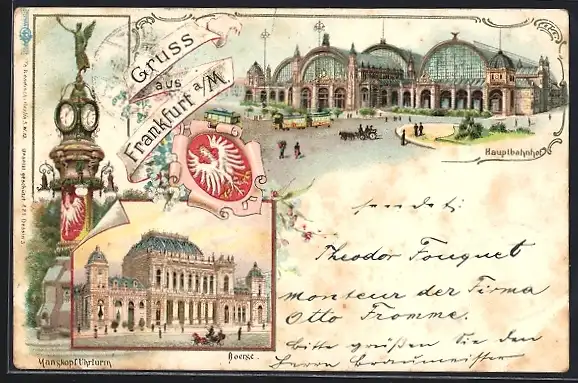 Gruss
aus
Frankfurt a/M.
Hauptbahnhof
sendet:
Theodor Fouquet
monteur der Firma
Otto Fromme.
bitte grüßen Sie den
Herrn Braumeister
Manskopf Uhrturm
Boerse.